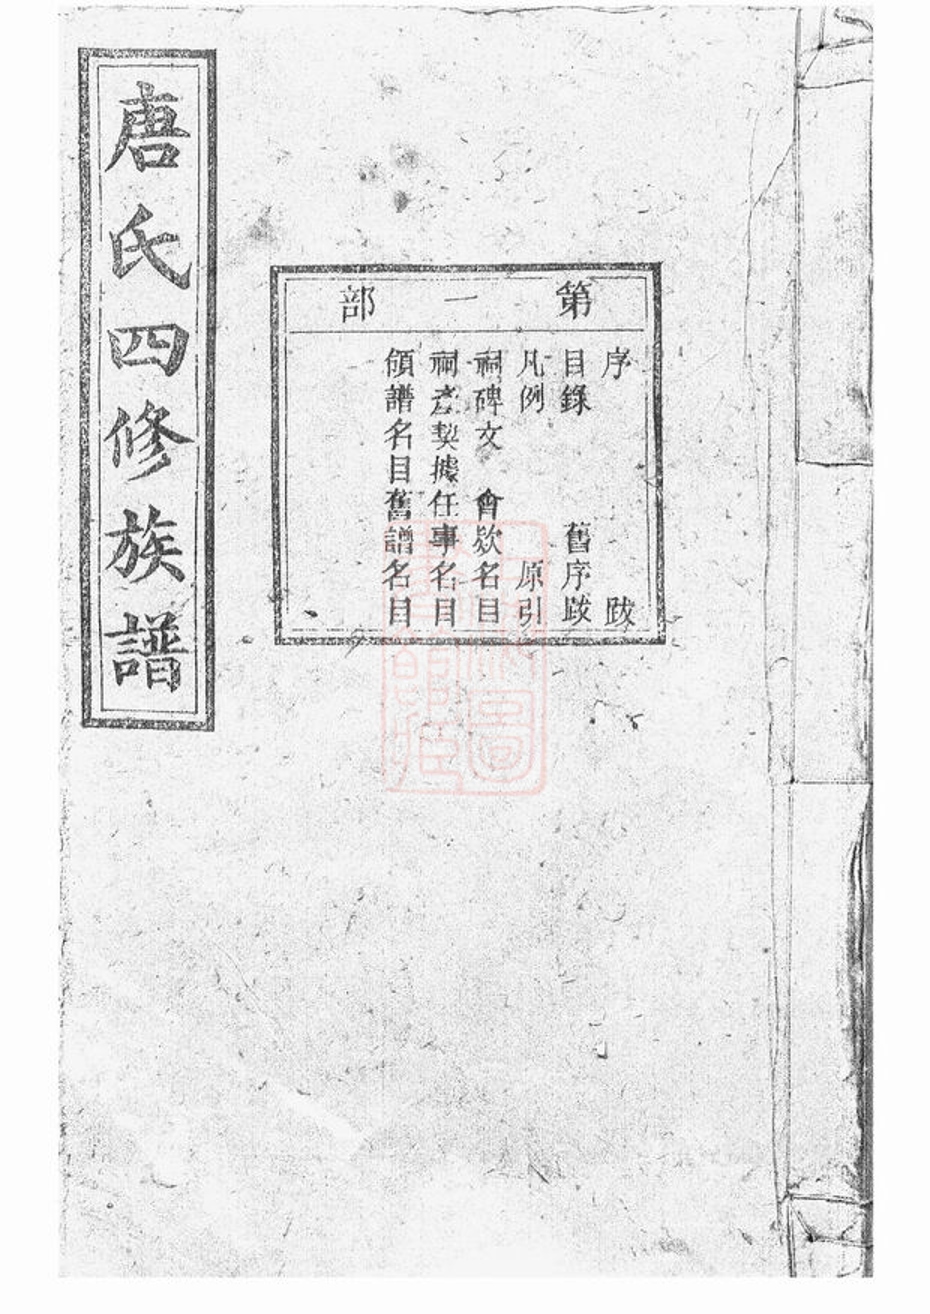 唐氏四修族譜
第一部
序 跋
目錄 舊序跋
凡例 原引
祠碑文 會欵名目
祠产契據任事名目
領譜名目舊譜名目